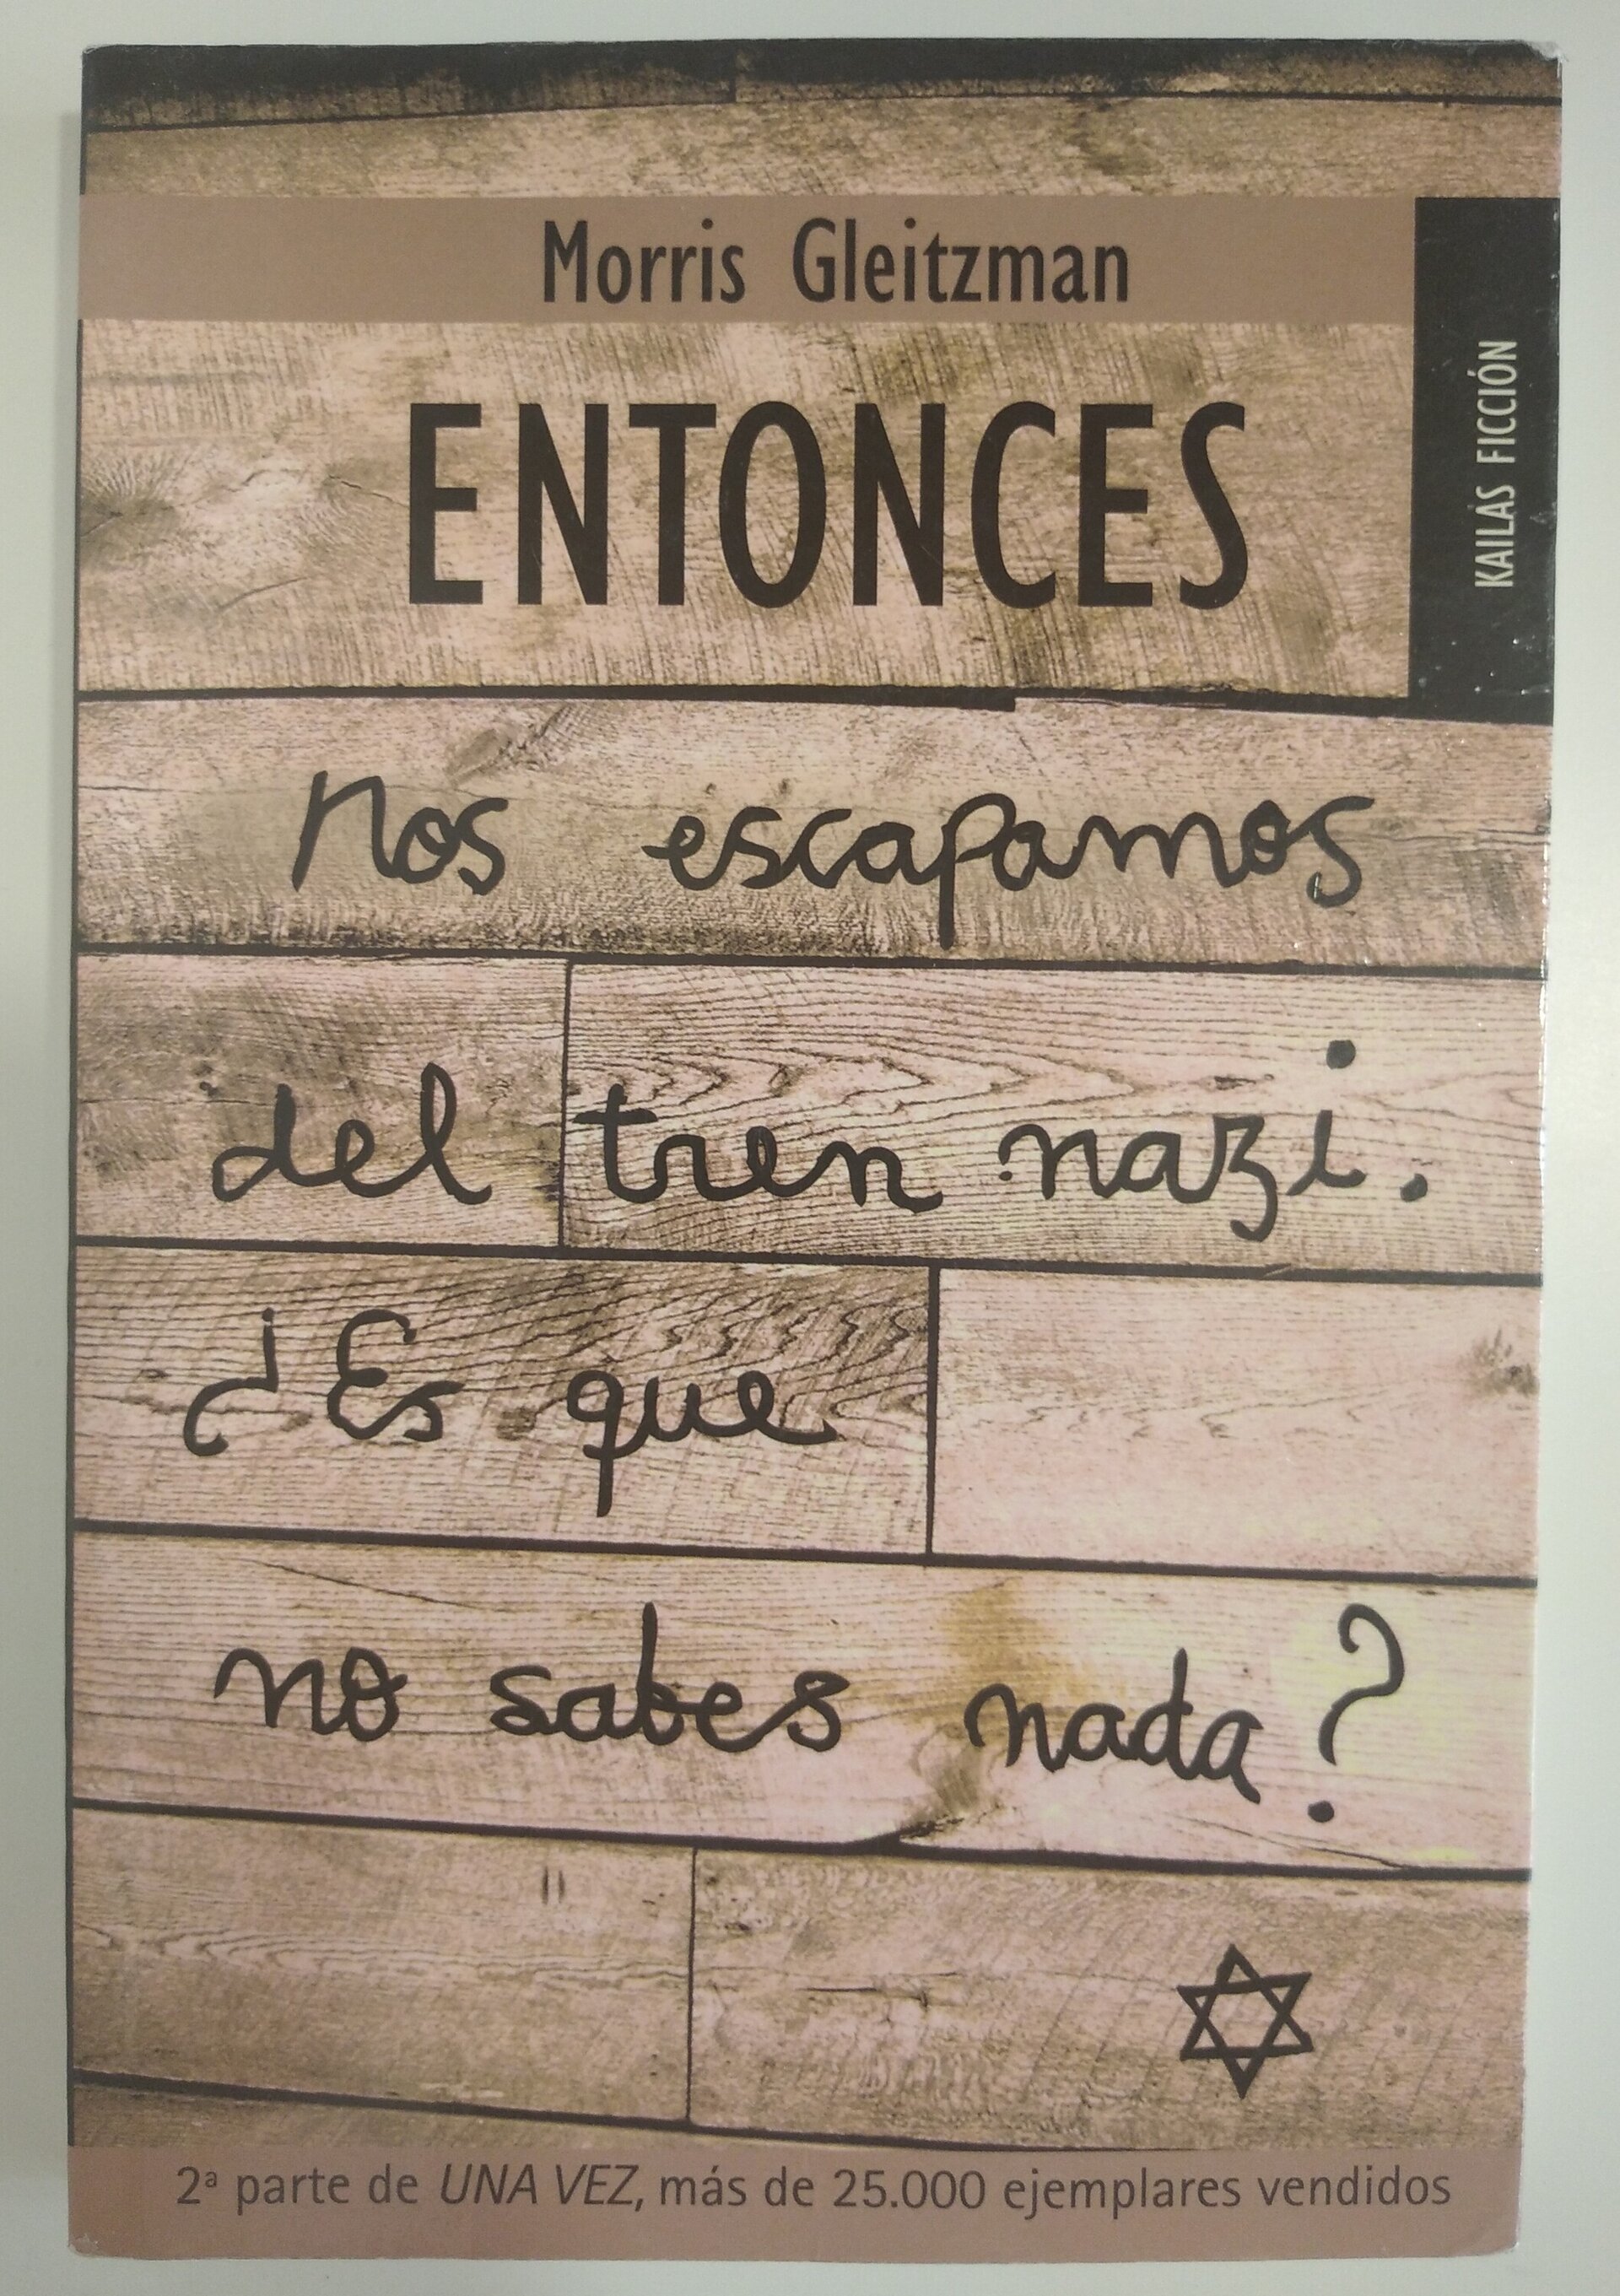 Morris Gleitzman
KAILAS FICCIÓN
ENTONCES
Nos escapamos
del tren nazi.
¿Es que
no sabes nada?
2ª parte de UNA VEZ, más de 25.000 ejemplares vendidos